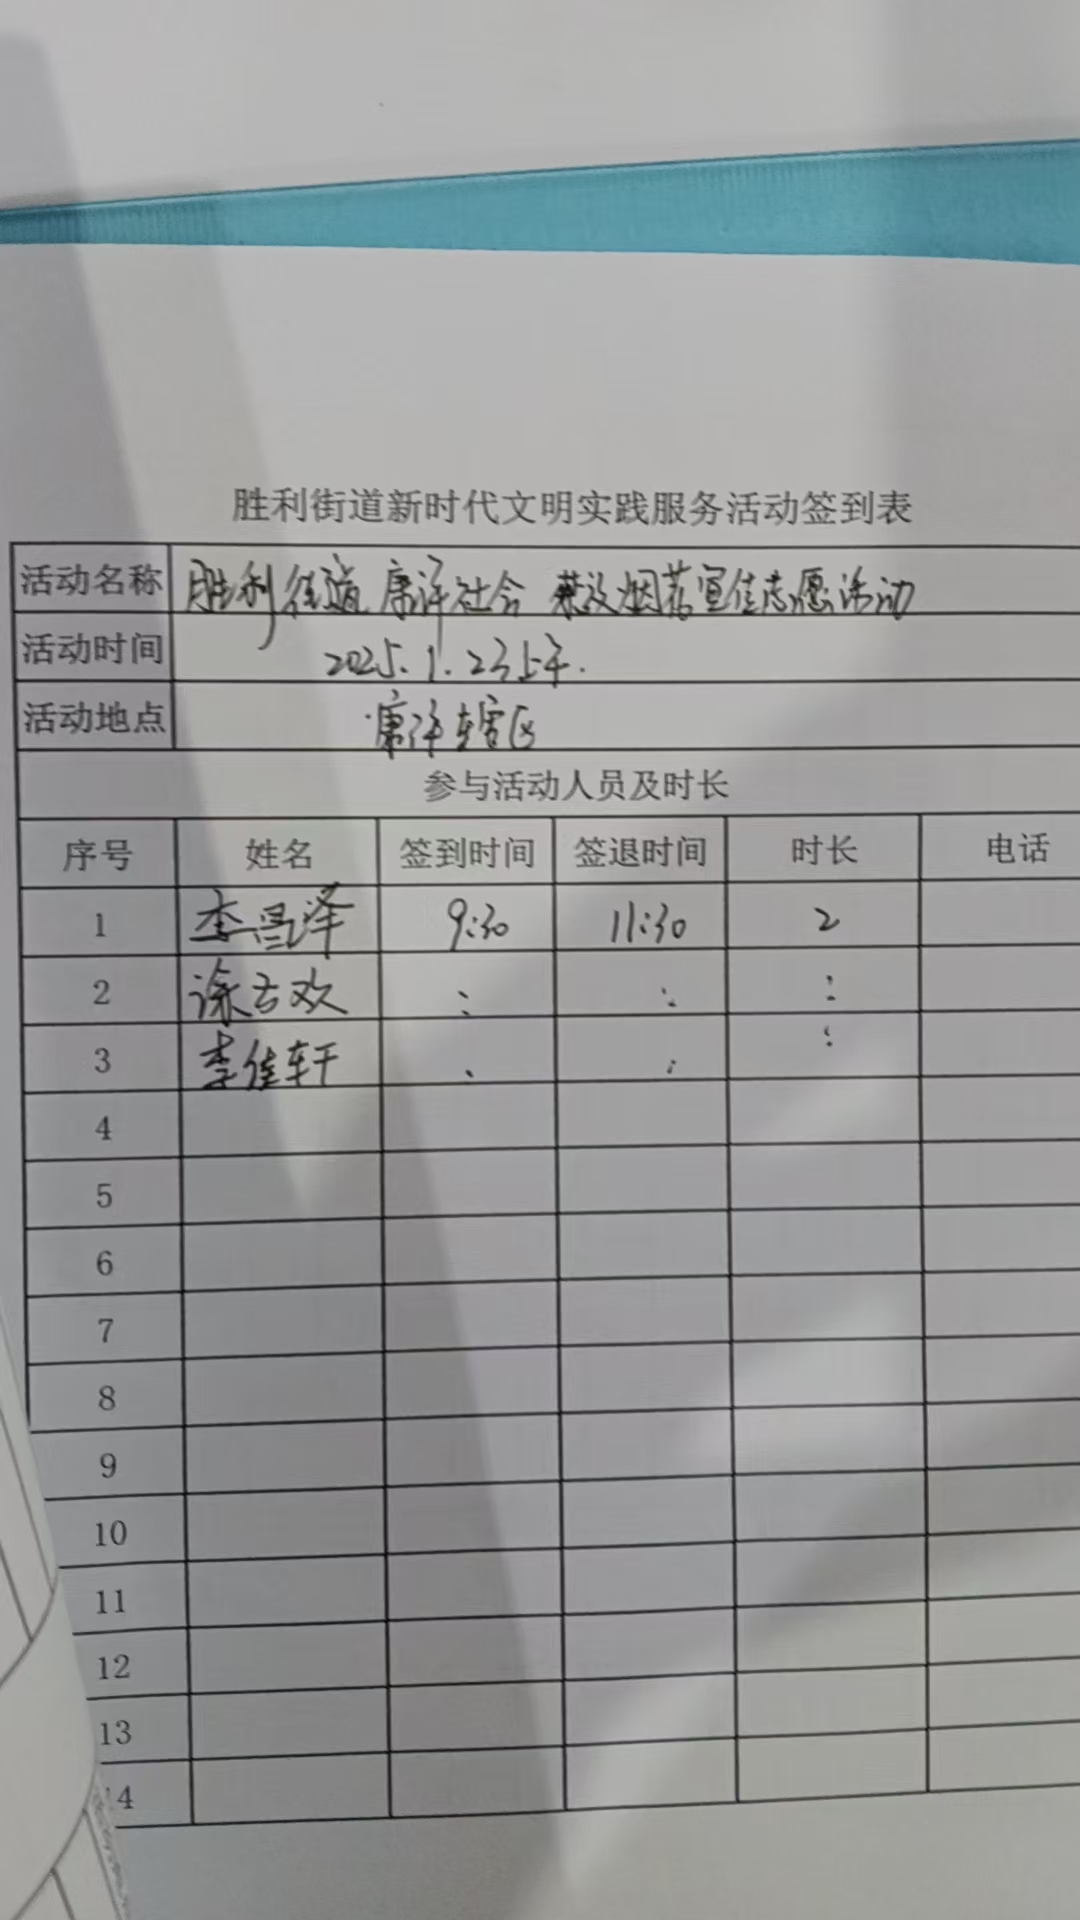 胜利街道新时代文明实践服务活动签到表
活动名称 胜利街道康洋社会 禁放烟花宣传志愿活动
活动时间 2025.1.23上午.
活动地点 康洋辖区
参与活动人员及时长
序号 姓名 签到时间 签退时间 时长 电话
1 李昌泽 9:30 11:30 2
2 欢 : : :
3 李佳轩 : : :
4
5
6
7
8
9
10
11
12
13
14